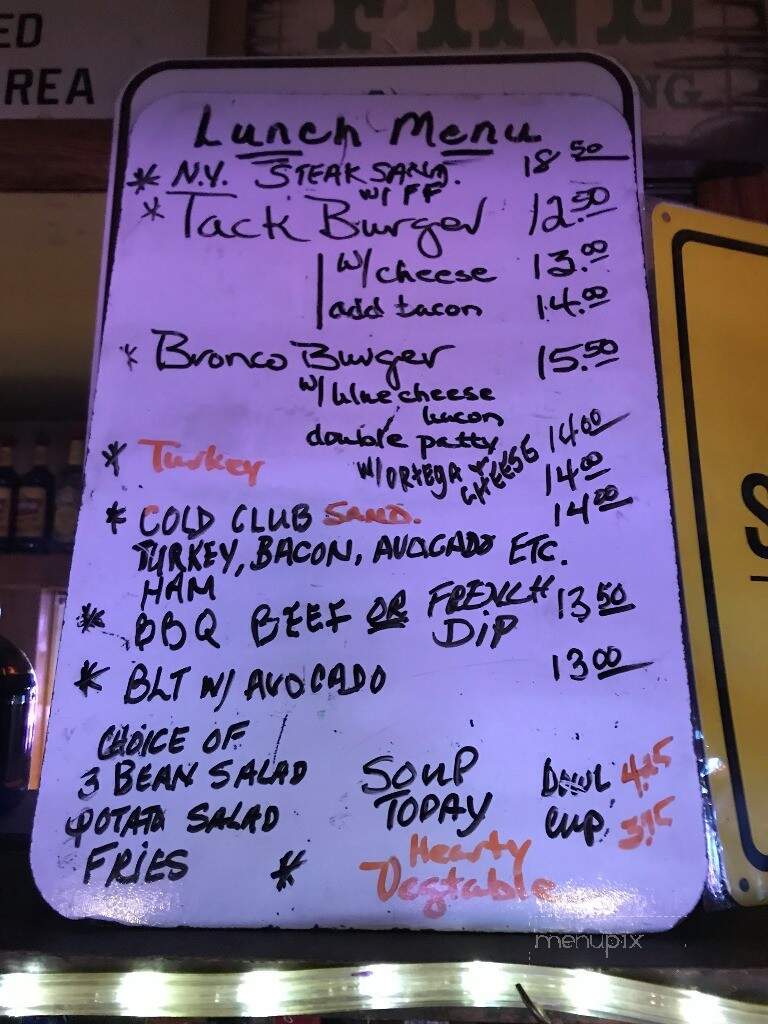 ED
REA
FINE
NG
Lunch Menu
* N.Y. STEAK SAND. 18 50
W/ FF
* Tack Burger 12.50
w/ cheese 13.00
add tacon 14.00
* Bronco Burger 15.50
w/ blue cheese
bacon
double patty
* Turkey W/ ORTEGA CHEESE 14 00
14 00
* COLD CLUB SAND. 14 00
TURKEY, BACON, AVOCADO ETC.
HAM
* BBQ BEEF OR FRENCH DIP 13 50
* BLT W/ AVOCADO 13 00
CHOICE OF
3 BEAN SALAD
POTATO SALAD
FRIES *
SOUP TODAY
BOWL 4.25
CUP. 3.75
Hearty
Vegtable
S
menupix